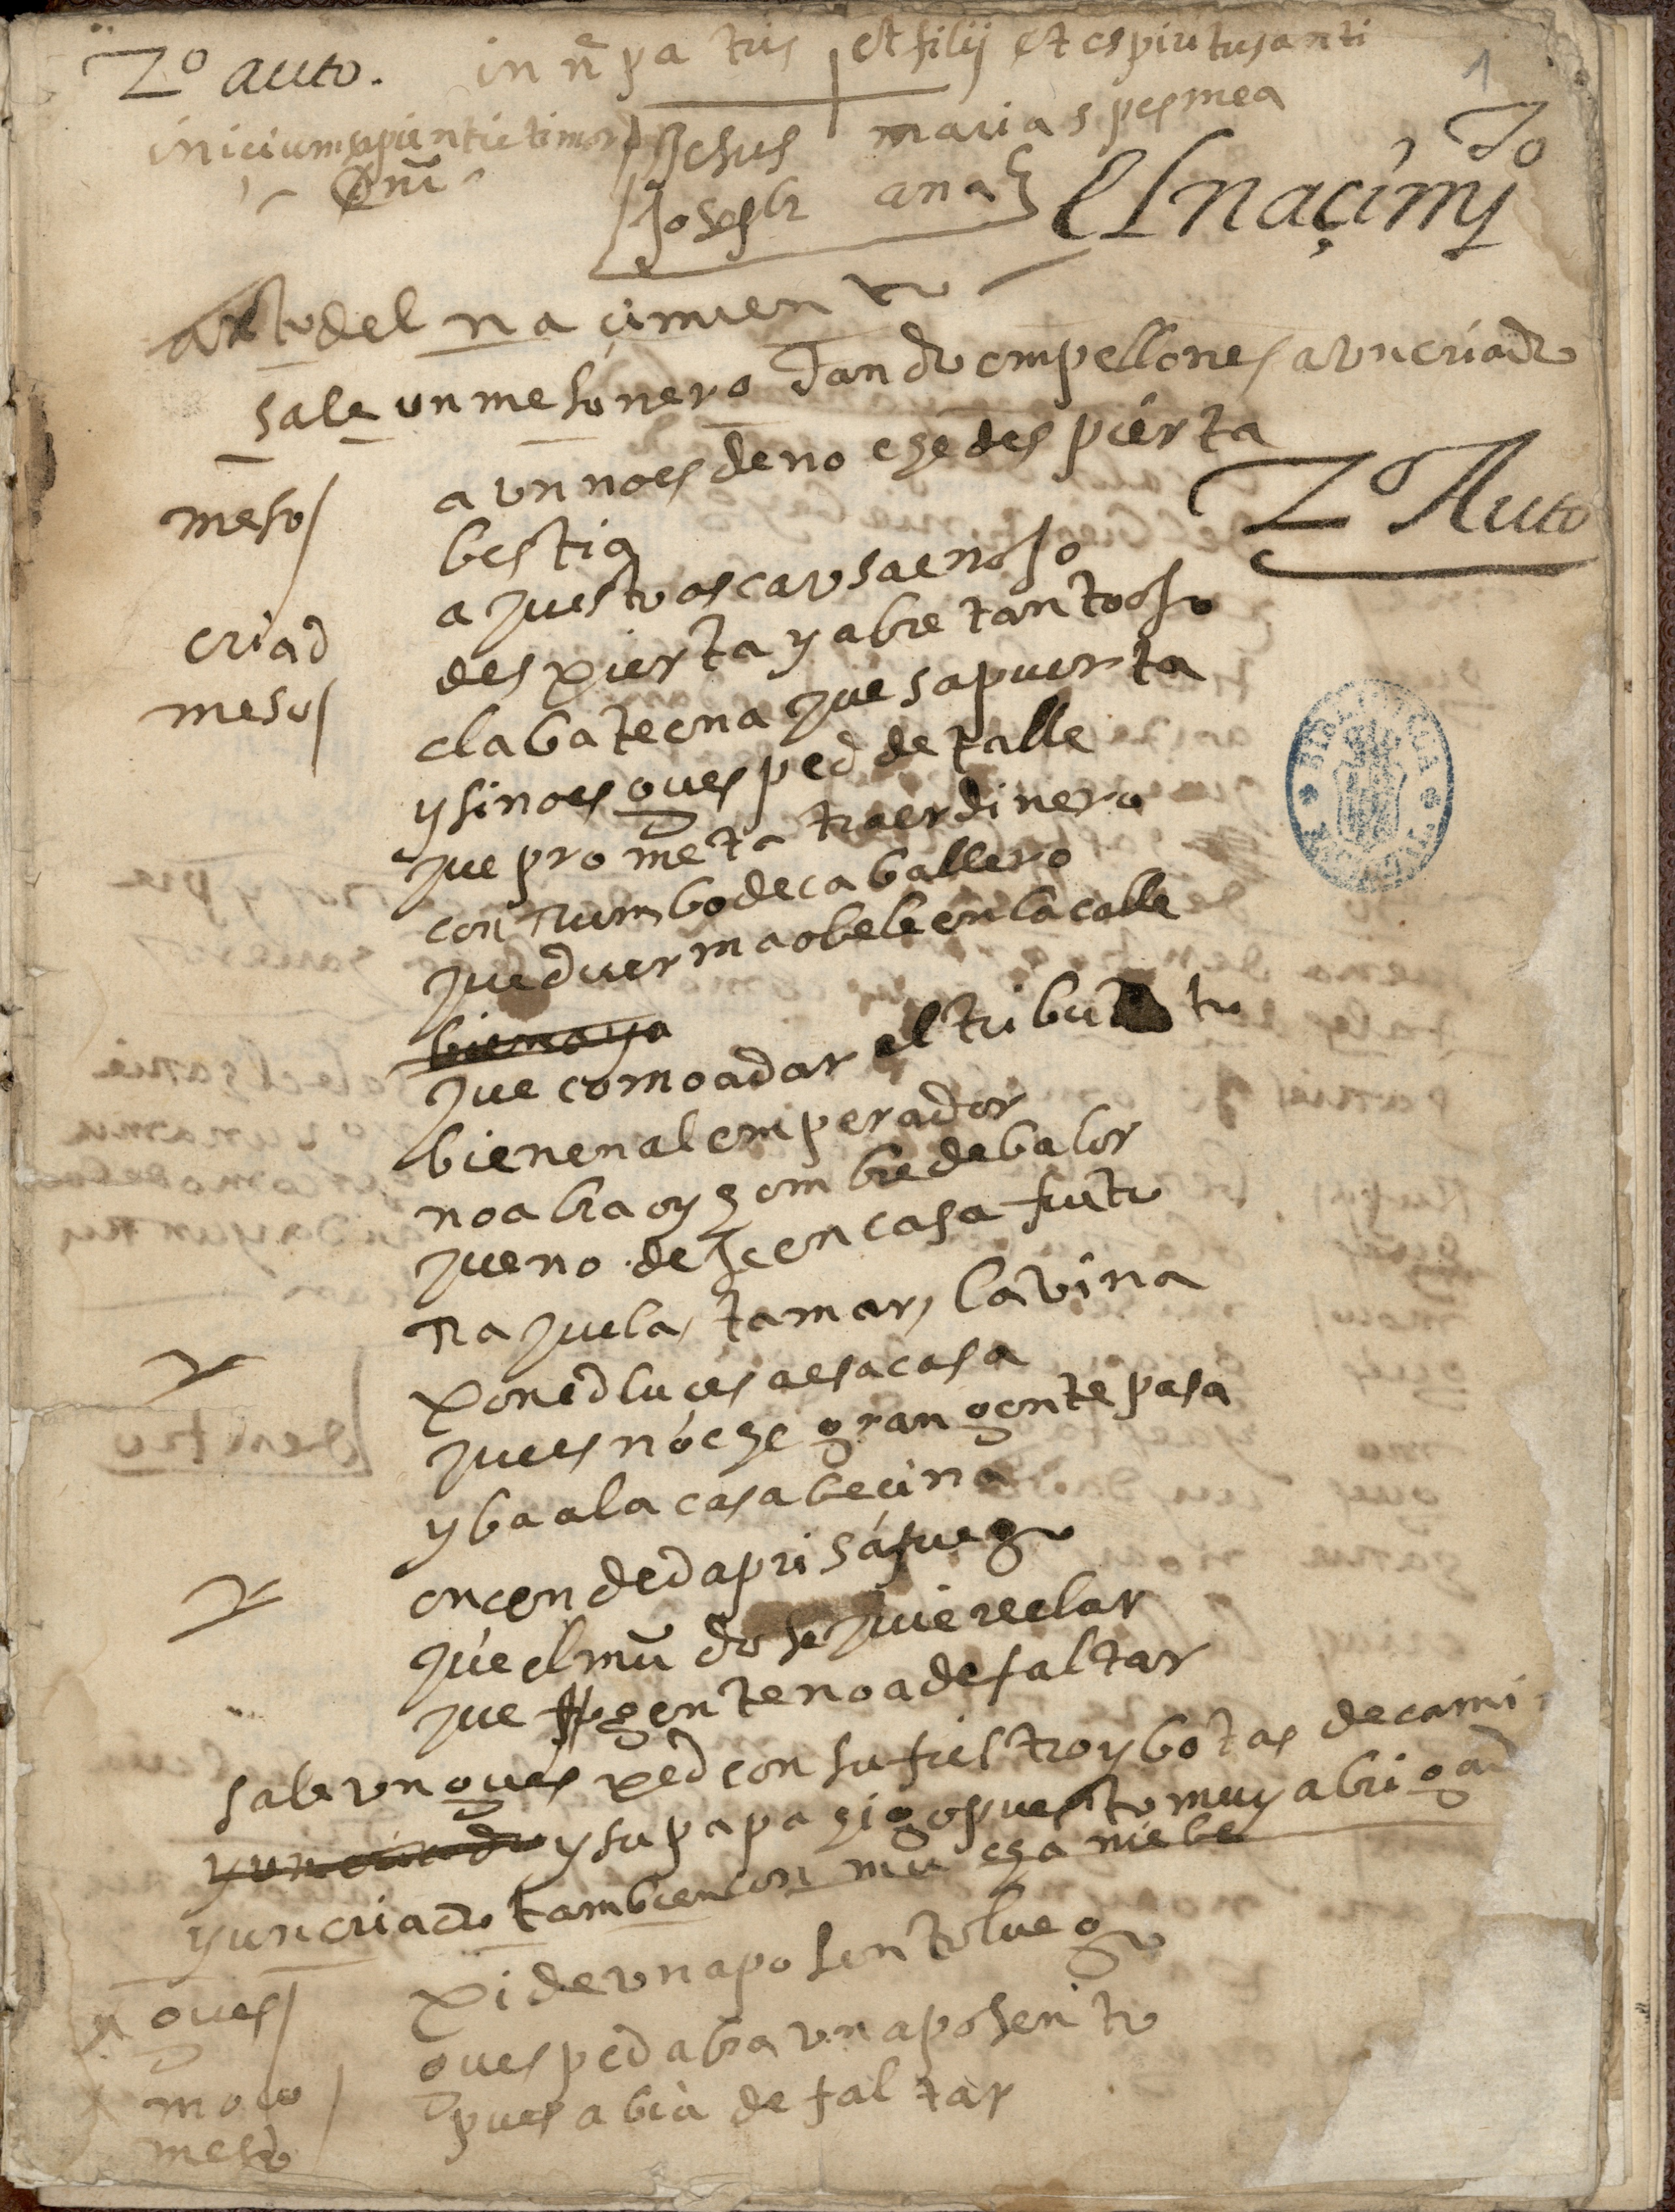 2º auto. in nē patris et filij et espiritusanti
1
inicium sapientie timor
Dnī
Jesus maria spes mea
Joseph ana
El naçimjto
auto del naçimiento
sale un mesonero dando empellones a un criado
2º Auto
meso/ aun no es de noche despierta
bestia
criad a questo os causa enojo
meso/ despierta y abre tanto ojo
clabate en aquesa puerta
y si no es guesped de talle
que prometa traer dinero
con rumbo de caballero
que duerma o bele en la calle
bienaya
que como a dar el tributo
bienen al emperador
no abra oy honbre de balor
que no deje en casa fruto
Raquela, tamar, lavina
poned luçes a esa casa
ques noche gran gente pasa
y ba a la casa beçina
ençended aprisa fuego
que el mūdo se quiere elar
que gente no a de faltar
sale un guesped con su fieltro y botas de cami
y un criado y su papahigo puesto muy abrigad
y un criado tambien con mucha niebe
gues/ pide un aposento luego
moço guesped abra un aposento
meso pues abia de faltar